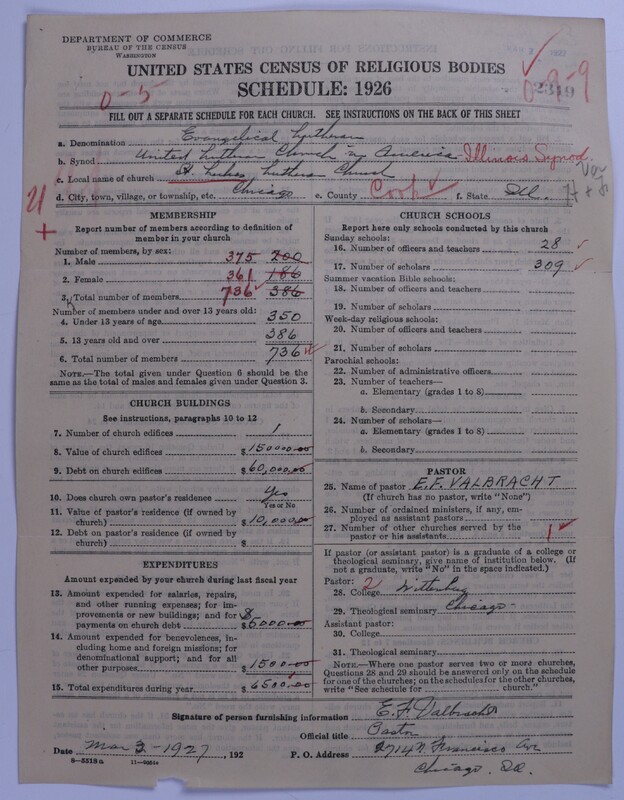 DEPARTMENT OF COMMERCE
BUREAU OF THE CENSUS
WASHINGTON
UNITED STATES CENSUS OF RELIGIOUS BODIES
SCHEDULE: 1926
0-5
0-9-9
2319
FILL OUT A SEPARATE SCHEDULE FOR EACH CHURCH. SEE INSTRUCTIONS ON THE BACK OF THIS SHEET
a. Denomination Evangelical Lutheran
b. Synod United Lutheran Church in America Illinois Synod
c. Local name of church St. Lukes Lutheran Church
d. City, town, village, or township, etc. Chicago e. County Cook f. State Ill.
MEMBERSHIP
Report number of members according to definition of
member in your church
Number of members, by sex:
1. Male 375 200
2. Female 361 186
3. Total number of members 736 386
Number of members under and over 13 years old:
4. Under 13 years of age 350
5. 13 years old and over 386
6. Total number of members 736
NOTE.—The total given under Question 6 should be
the same as the total of males and females given under Question 3.
CHURCH BUILDINGS
See instructions, paragraphs 10 to 12
7. Number of church edifices 1
8. Value of church edifices $150000.00
9. Debt on church edifices $60,000.00
10. Does church own pastor's residence Yes
Yes or No
11. Value of pastor's residence (if owned by
church) $10,000.00
12. Debt on pastor's residence (if owned by
church) $
EXPENDITURES
Amount expended by your church during last fiscal year
13. Amount expended for salaries, repairs,
and other running expenses; for im-
provements or new buildings; and for
payments on church debt $5000.00
14. Amount expended for benevolences, in-
cluding home and foreign missions; for
denominational support; and for all
other purposes 1500.00
15. Total expenditures during year $6500.00
CHURCH SCHOOLS
Report here only schools conducted by this church
Sunday schools:
16. Number of officers and teachers 28
17. Number of scholars 309
Summer vacation Bible schools:
18. Number of officers and teachers
19. Number of scholars
Week-day religious schools:
20. Number of officers and teachers
21. Number of scholars
Parochial schools:
22. Number of administrative officers
23. Number of teachers—
a. Elementary (grades 1 to 8)
b. Secondary
24. Number of scholars—
a. Elementary (grades 1 to 8)
b. Secondary
PASTOR
25. Name of pastor E.F. VALBRACHT
(If church has no pastor, write "None")
26. Number of ordained ministers, if any, em-
ployed as assistant pastors
27. Number of other churches served by the
pastor or his assistants 1
If pastor (or assistant pastor) is a graduate of a college or
theological seminary, give name of institution below. (If
not a graduate, write "No" in the space indicated.)
Pastor: 2
28. College Wittenburg
29. Theological seminary Chicago
Assistant pastor:
30. College
31. Theological seminary
NOTE.—Where one pastor serves two or more churches,
Questions 28 and 29 should be answered only on the schedule
for one of the churches; on the schedules for the other churches,
write "See schedule for church."
Signature of person furnishing information E. F. Valbracht
Official title Pastor
Date Mar 3-1927, 192 P. O. Address 2714 N. Francisco Ave
Chicago. Ill.
8—5518 a